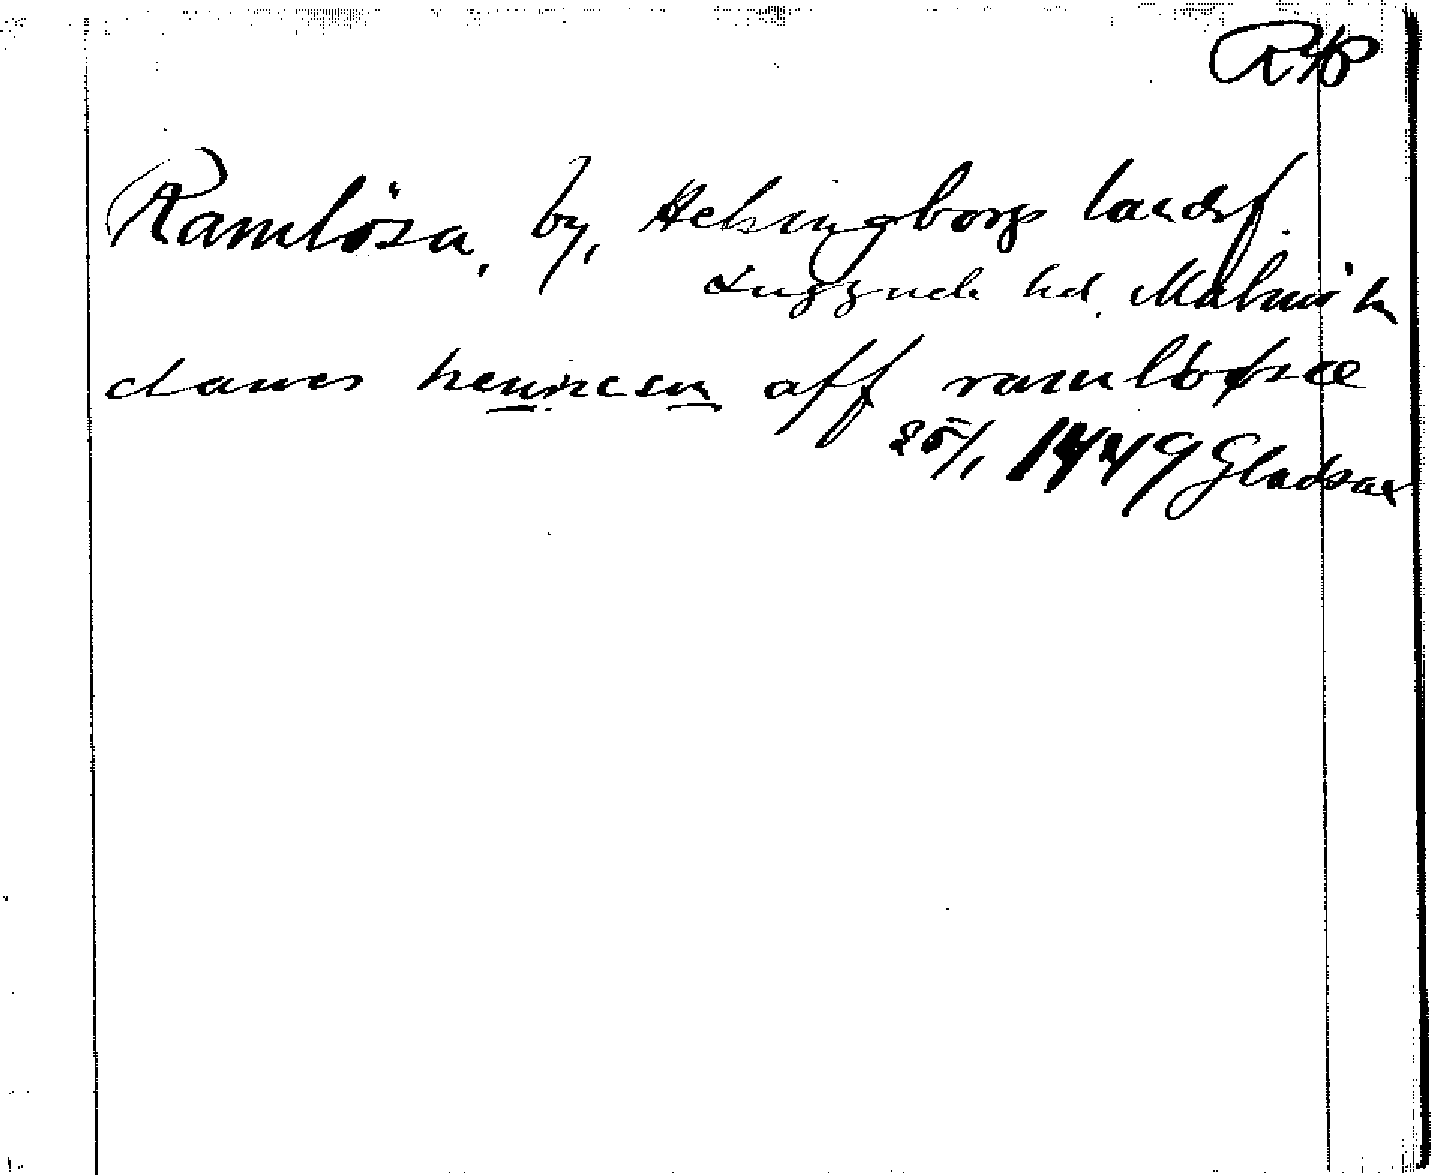 Ramlösa, by, Helsingborgs landsf.
Luggude hd. Malmöh
clawes hennesøn aff ramløøsæ
25/1 1449 Gladsax